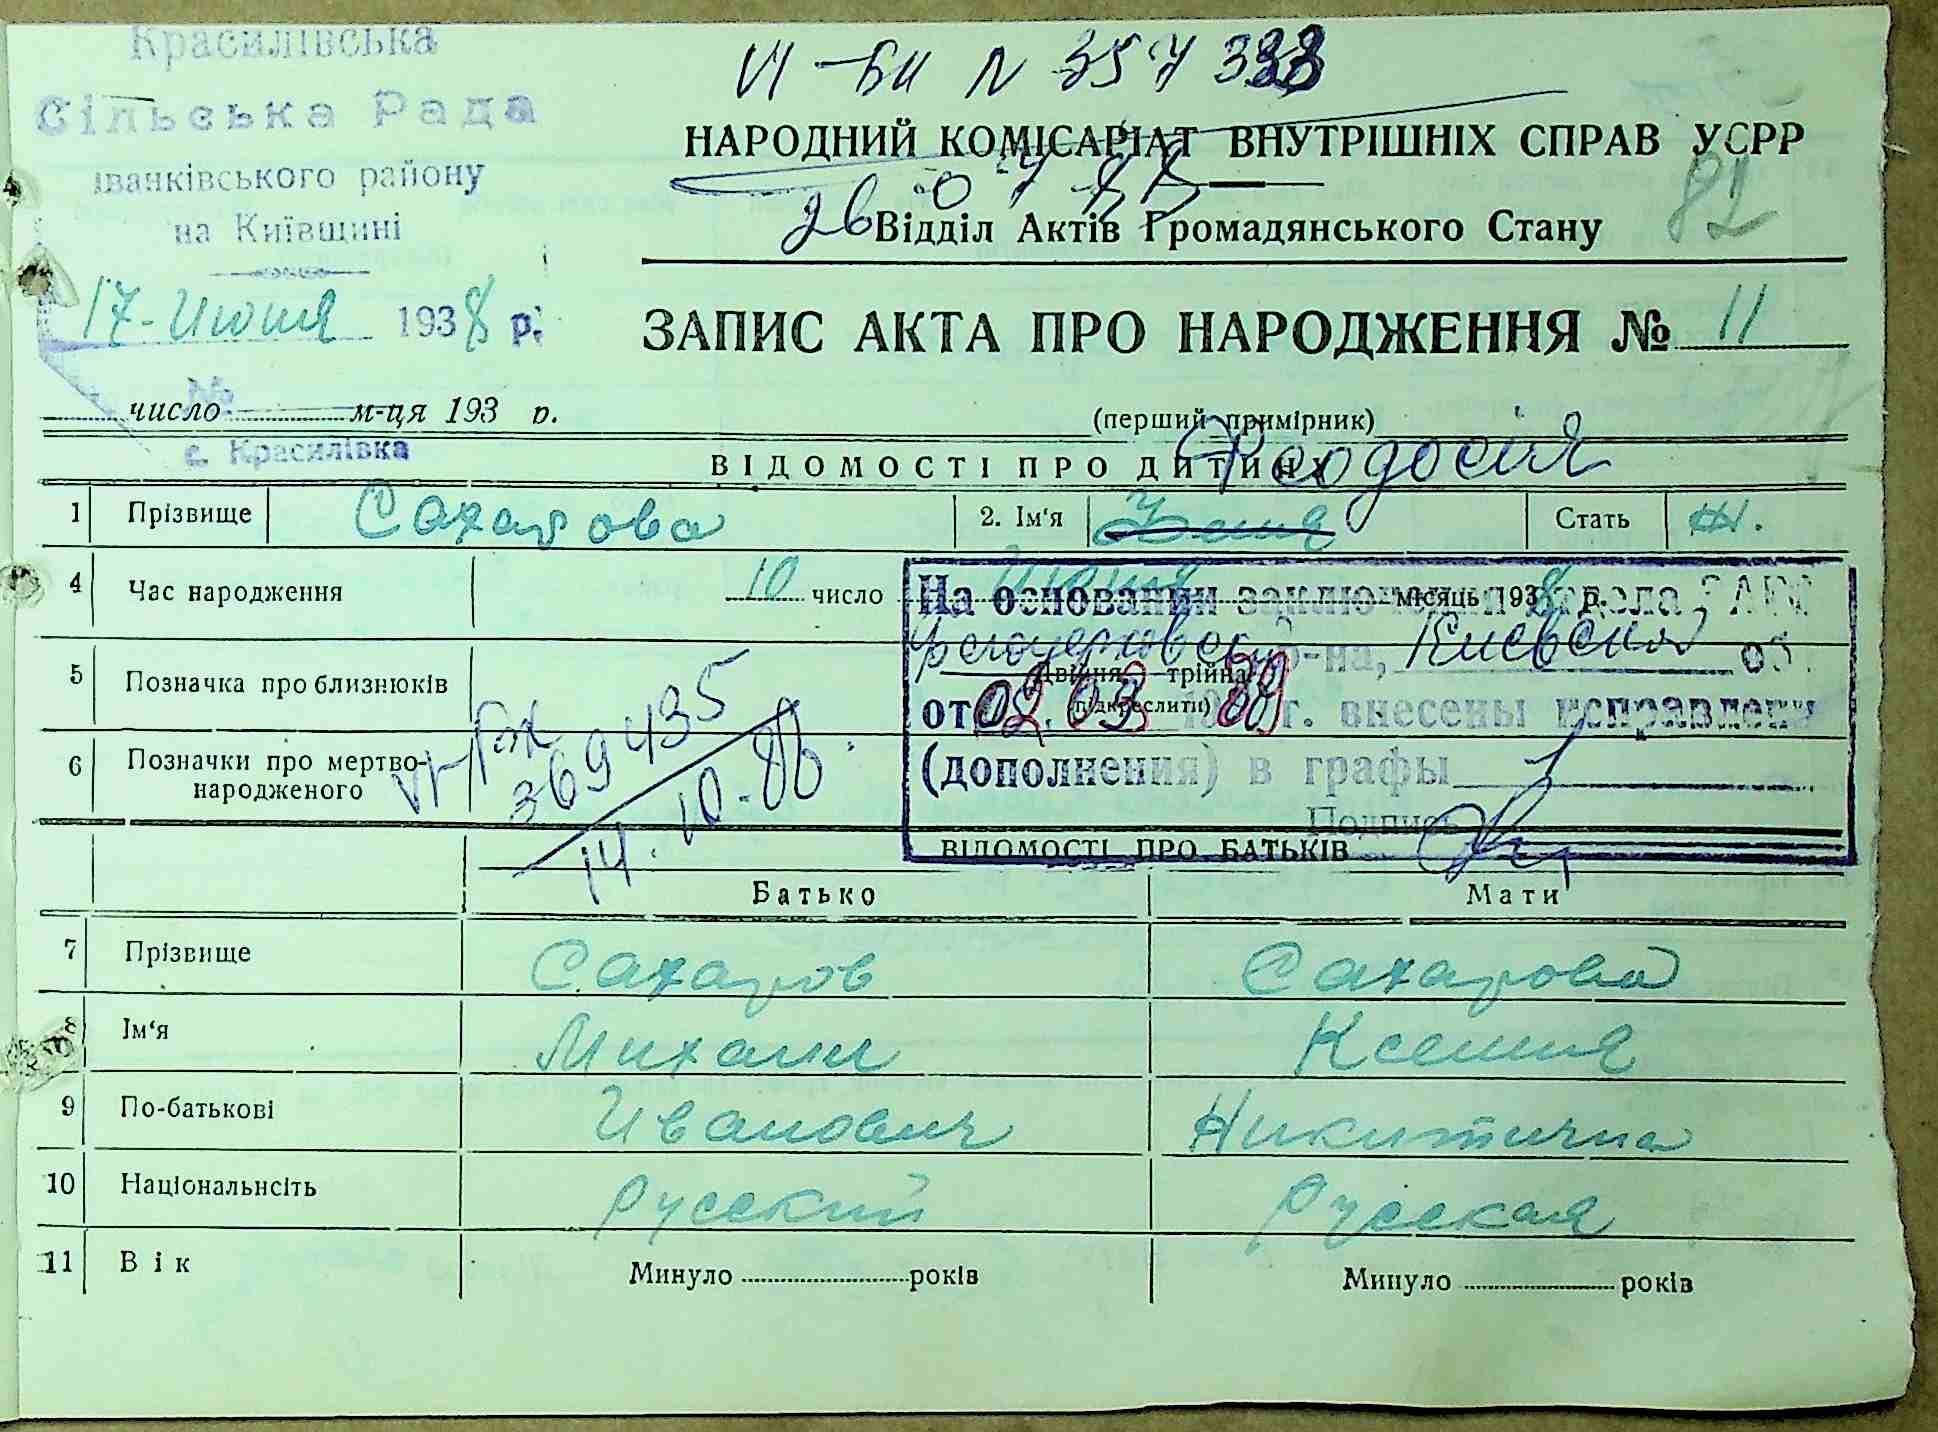 Красилівська
Сільська Рада
Іванківського району
на Київщині
17-Июня 1938 р.
№
с. Красилівка
число м-ця 193 р.
VI-БИ N 357 333
НАРОДНИЙ КОМІСАРІАТ ВНУТРІШНІХ СПРАВ УСРР
26 07
82
Відділ Актів Громадянського Стану
ЗАПИС АКТА ПРО НАРОДЖЕННЯ № 11
(перший примірник)
Феодосия
ВІДОМОСТІ ПРО ДИТИНУ
1 Прізвище Сахарова 2. Ім'я Стать ж.
4 Час народження 10 число Июня місяць 1938 р.
На основании заключения отдела ЗАГС
р-на, Киевская об.
5 Позначка про близнюків двійня трійня
(підкреслити)
от 02.03 1989 г. внесены исправления
(дополнения) в графы
6 Позначки про мертво-
народженого
369435
14.10.88
Подпись
ВІДОМОСТІ ПРО БАТЬКІВ
Батько Мати
7 Прізвище Сахаров Сахарова
8 Ім'я Михаил Ксения
9 По-батькові Иванович Никитична
10 Національнсіть Русский Русская
11 Вік Минуло років Минуло років